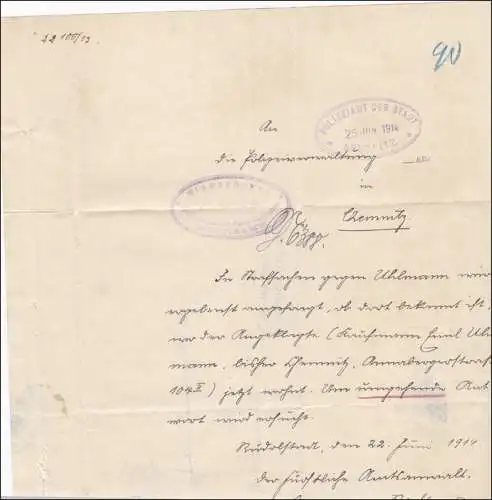 J 2 100/13.
90
An
POLIZEIAMT DER STADT
25. JUN. 1914
CHEMNITZ
die Polizeiverwaltung
in
Chemnitz.
In Strafsachen gegen Uhlmann wird
ergebenst angefragt, ob dort bekannt ist,
wo der Angeklagte (Kaufmann Emil Uhl-
mann, bisher Chemnitz, Annabergerstraße
104 II) jetzt wohnt. Um umgehende Ant-
wort wird ersucht.
Rudolstadt, den 22. Juni 1914
der Fürstliche Amtsanwalt.